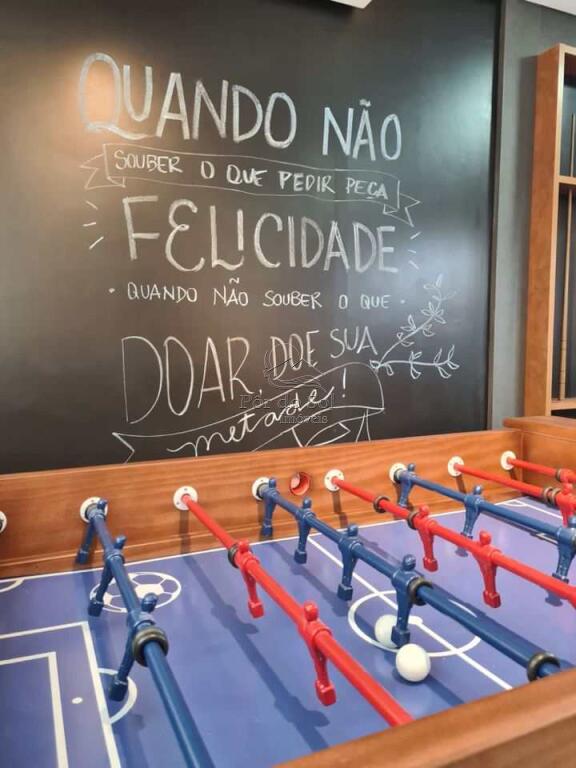 QUANDO NÃO
SOUBER O QUE PEDIR PEÇA
FELICIDADE
· QUANDO NÃO SOUBER O QUE ·
DOAR, DOE SUA
metade!
Pôr do Sol
imóveis